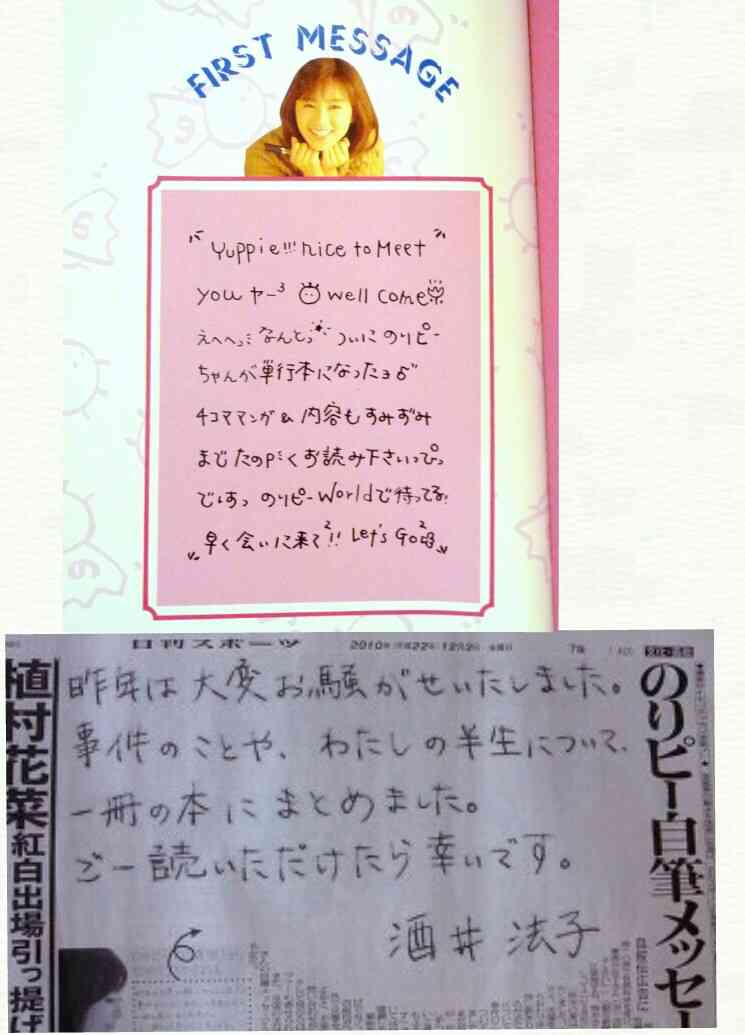 FIRST MESSAGE
"Yuppie!!! nice to Meet"
you ヤー³ well come
えへへっ なんとっ ついに のりピー
ちゃんが単行本になったョ
4コママンガ& 内容もすみずみ
まで たのPく お読み下さいっぴっ
ではっ のりピーWorldで待ってる!
早く会いに来て²!! Let's Go²
2010年(平成22年)12月2日
昨年は大変お騒がせいたしました。
事件のことや、わたしの半生について、
一冊の本にまとめました。
ご一読いただけたら幸いです。
酒井 法子
のりピー自筆メッセー
植村花菜 紅白出場引っ提げ